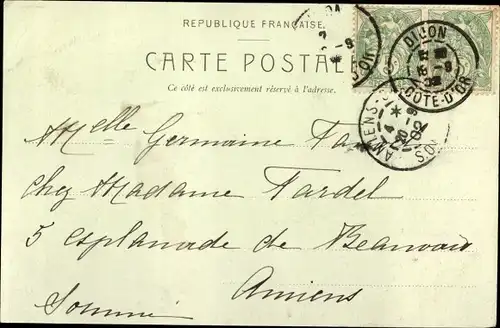 REPUBLIQUE FRANÇAISE
CARTE POSTALE
Ce côté est exclusivement réservé à l'adresse.
DIJON
CÔTE-D'OR
AMIENS
Melle Germaine
chez Madame Tardel
5 esplanade de Beauvais
Amiens
Somme